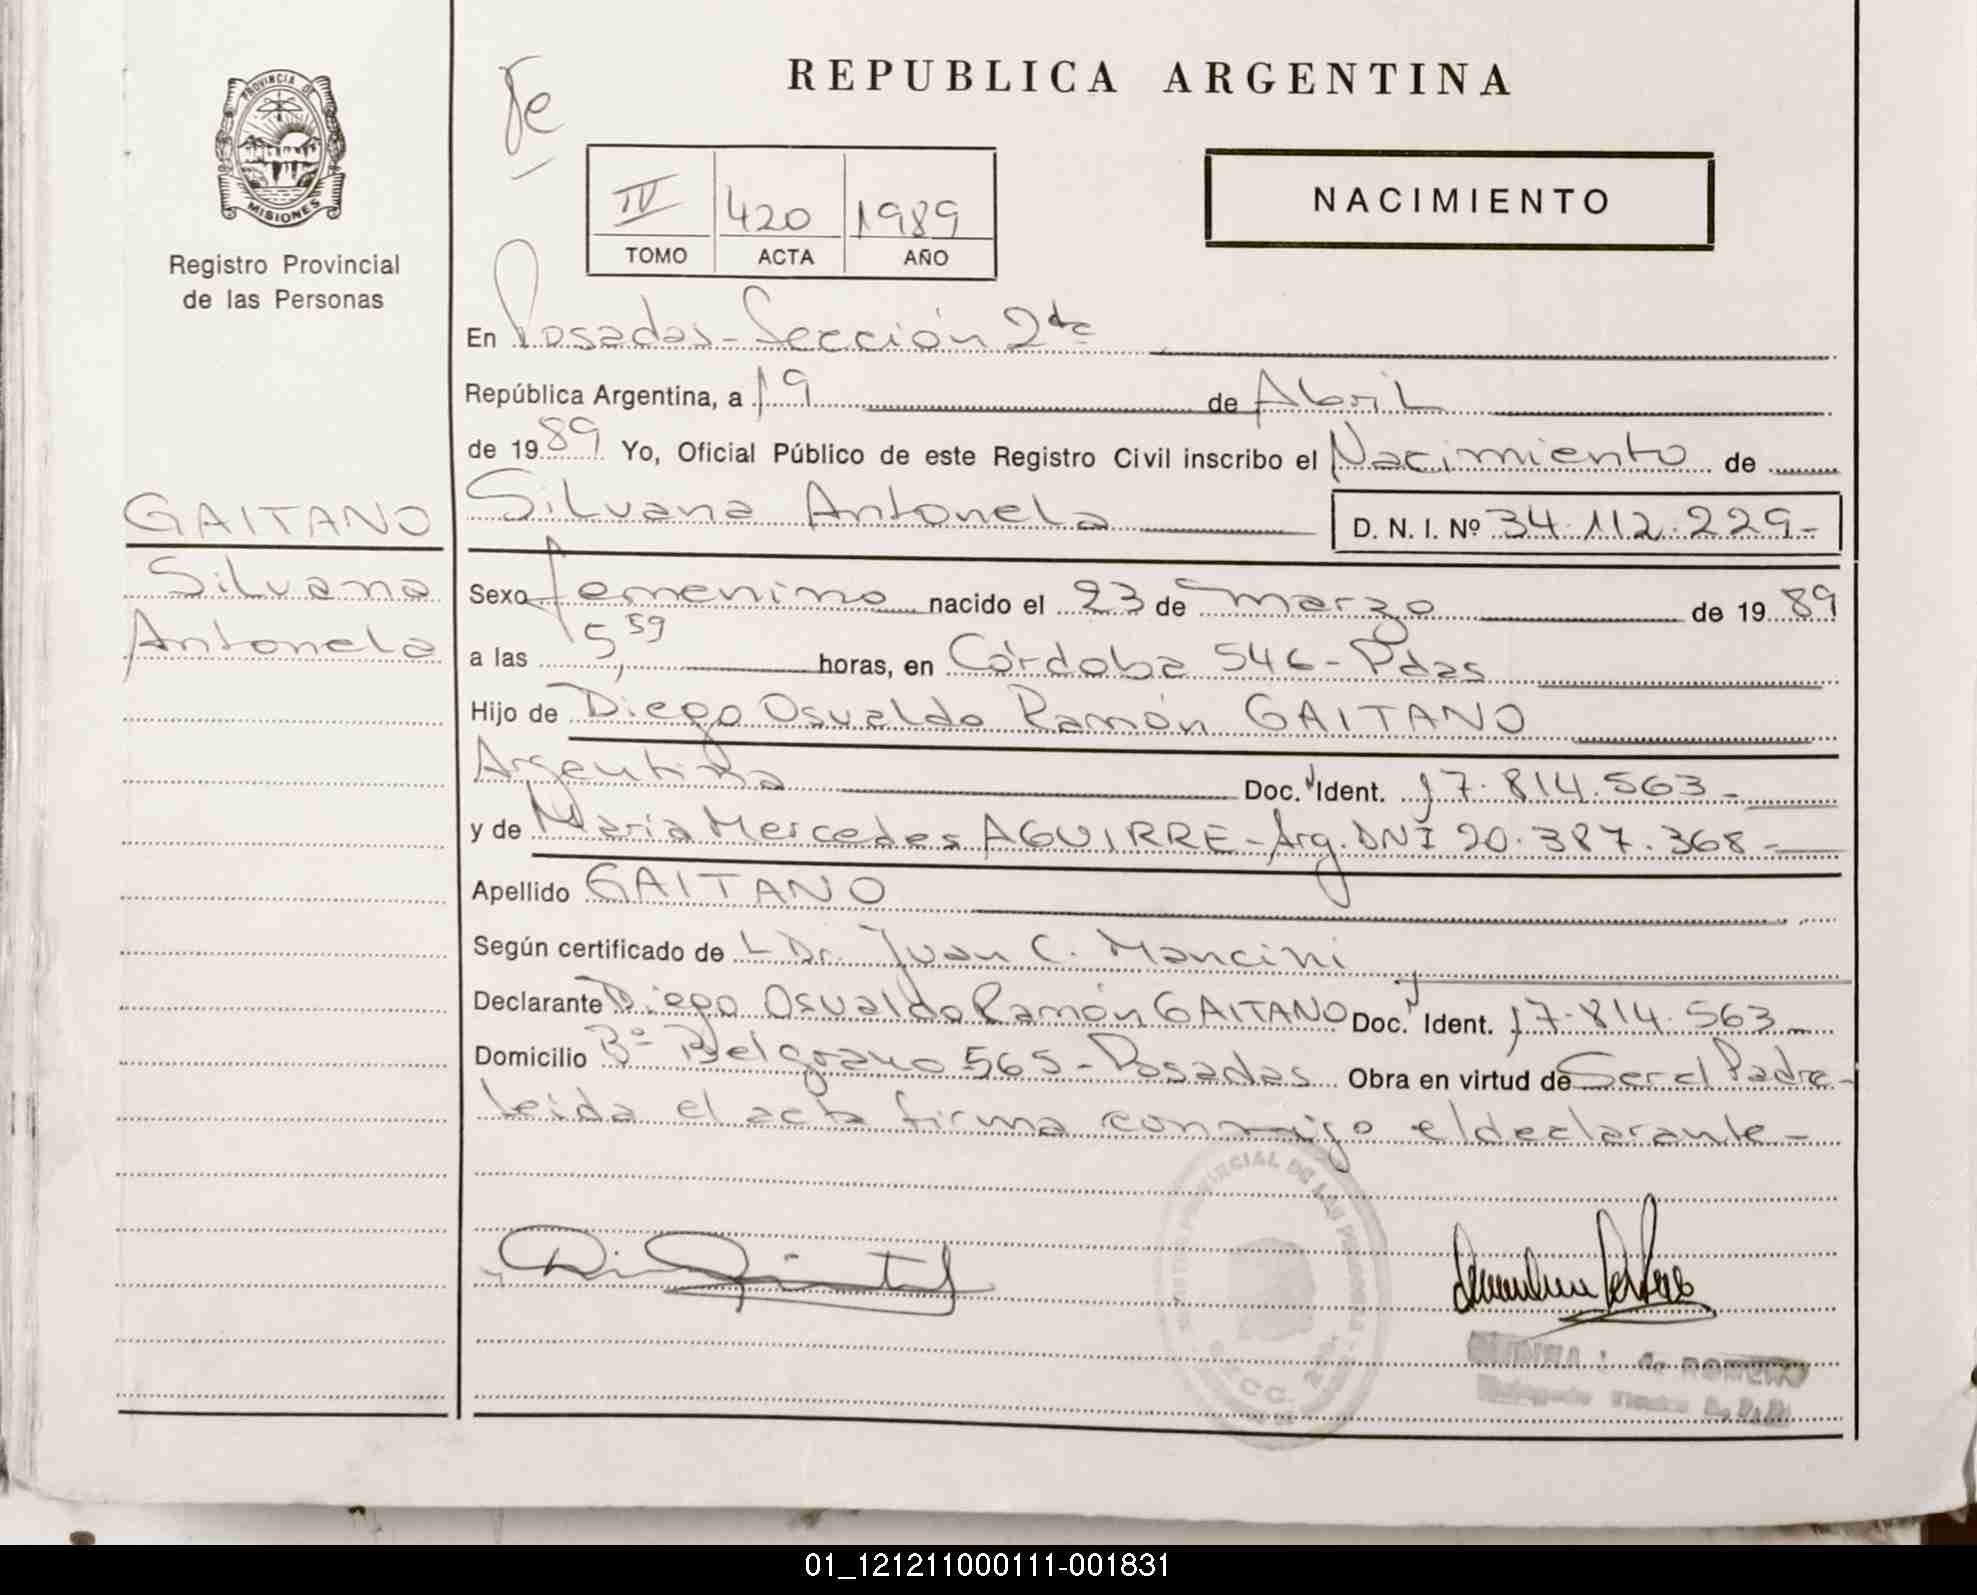 PROVINCIA DE
MISIONES
Registro Provincial
de las Personas
REPUBLICA ARGENTINA
NACIMIENTO
IV 420 1989
TOMO ACTA AÑO
En Posadas - Sección 2da
República Argentina, a 19 de Abril
de 1989 Yo, Oficial Público de este Registro Civil inscribo el Nacimiento de
GAITANO
Silvana Antonela D. N. I. Nº 34.112.229.-
Silvana
Sexo femenino nacido el 23 de marzo de 1989
Antonela
a las 5,59 horas, en Córdoba 546 - Pdas
Hijo de Diego Osvaldo Ramón GAITANO
Argentina Doc. Ident. 17.814.563-
y de María Mercedes AGUIRRE - Arg. DNI 20.387.368-
Apellido GAITANO
Según certificado de L Dr. Juan C. Mancini
Declarante Diego Osvaldo Ramón GAITANO Doc. Ident. 17.814.563
Domicilio Bº Belgrano 565 - Posadas Obra en virtud de Ser el Padre-
Leida el acta firma conmigo el declarante-
01_121211000111-001831